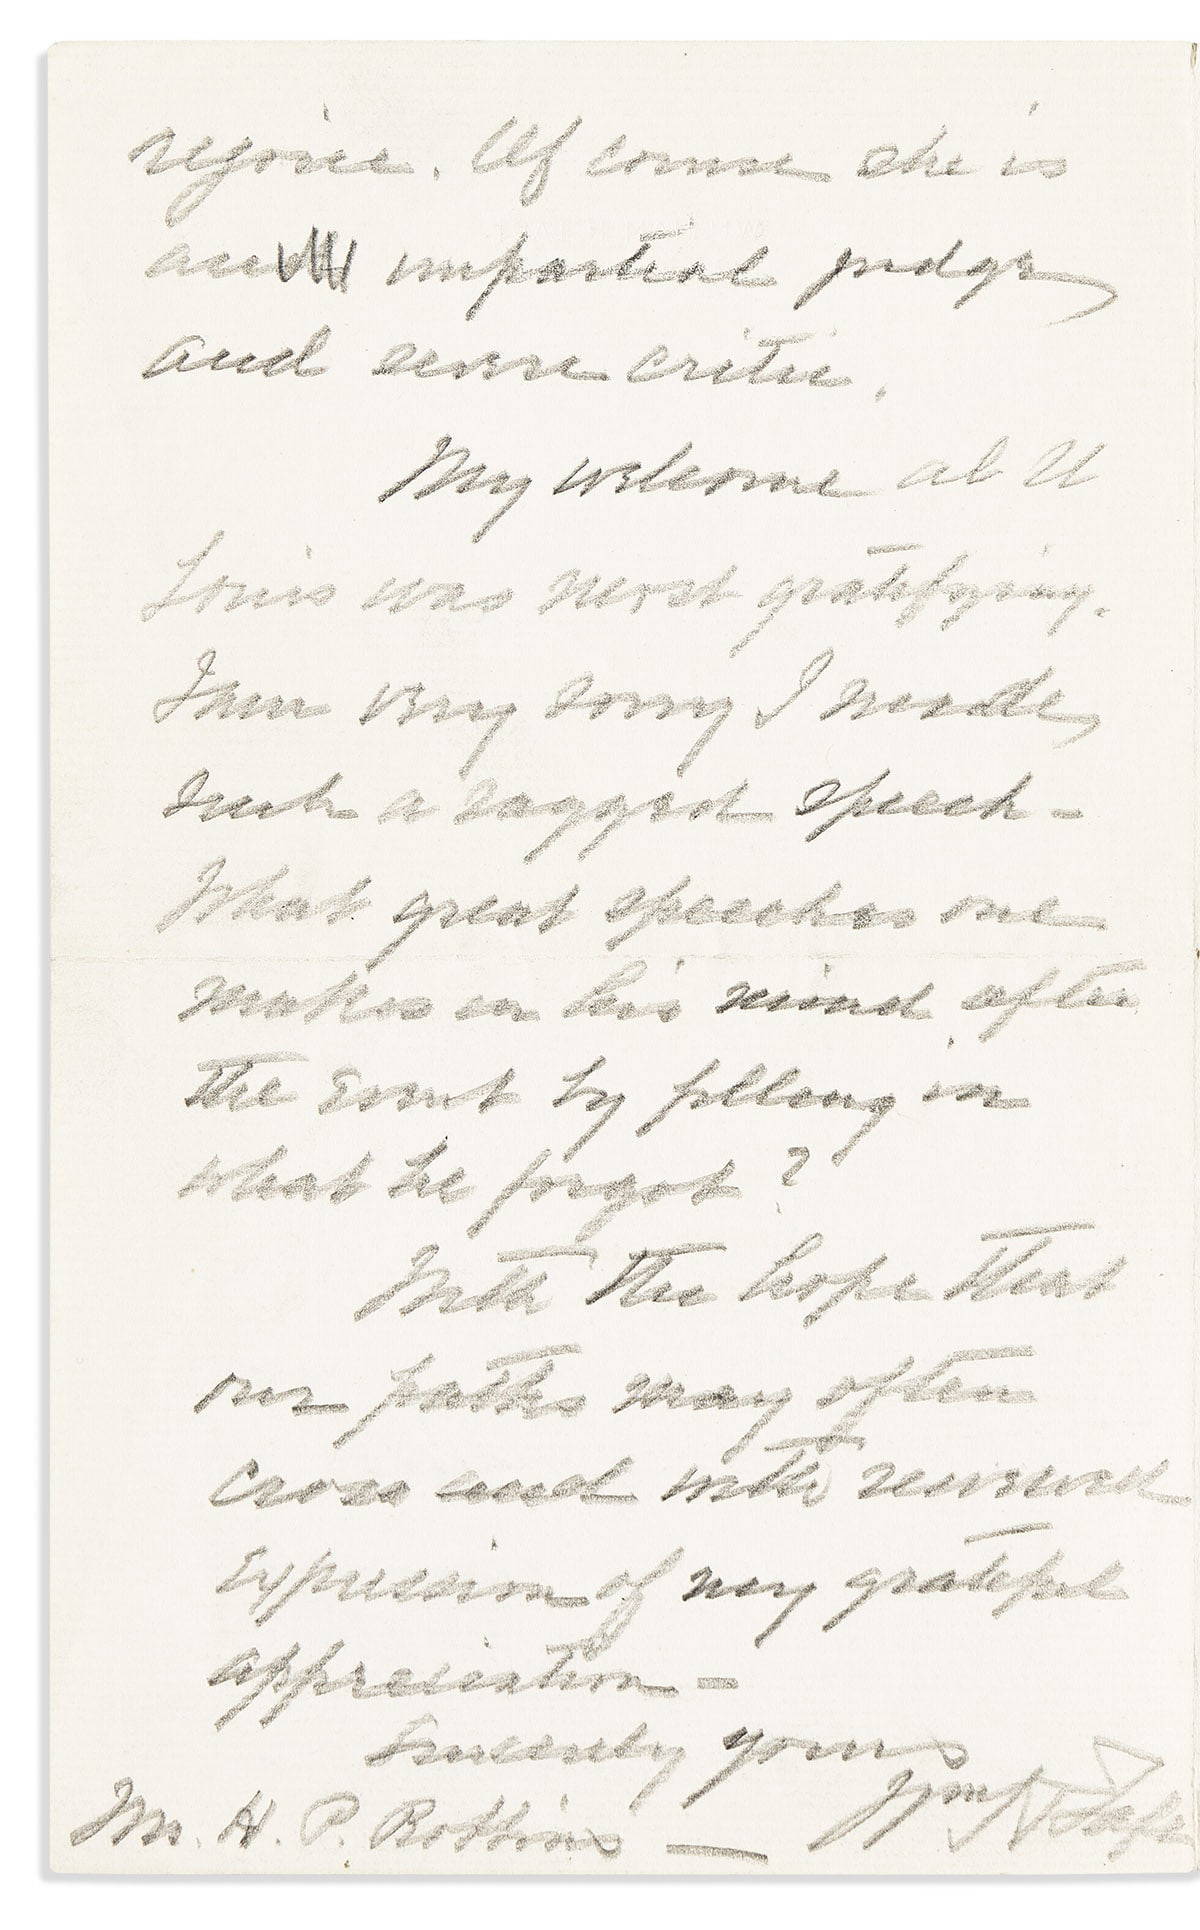 rejoice. Of course she is
an impartial judge,
and severe critic.
My welcome at St
Louis was most gratifying.
I am very sorry I made,
such a ragged speech -
What great speeches one
makes in his mind after
the event by filling in
what he forgot?
With the hope that
our paths may often
cross and with renewed
expression of my grateful
appreciation -
Sincerely yours
Wm H Taft
Mr. H. P. Robbins —